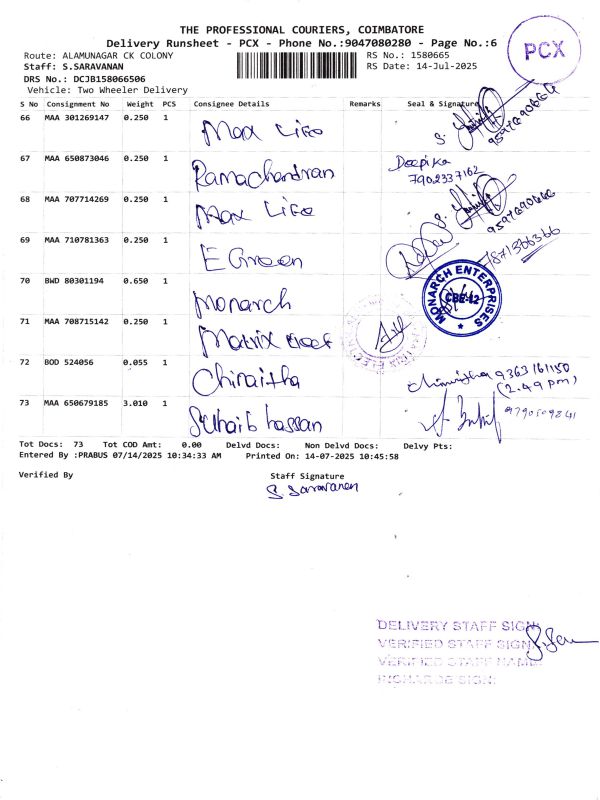 THE PROFESSIONAL COURIERS, COIMBATORE
Delivery Runsheet - PCX - Phone No.:9047080280 - Page No.:6
PCX
Route: ALAMUNAGAR CK COLONY RS No.: 1580665
Staff: S.SARAVANAN RS Date: 14-Jul-2025
DRS No.: DCJB158066506
Vehicle: Two Wheeler Delivery
S No Consignment No Weight PCS Consignee Details Remarks Seal & Signature
66 MAA 301269147 0.250 1 Max Life
67 MAA 650873046 0.250 1 Ramachandran Deepika
7902337162
68 MAA 707714269 0.250 1 Max Life
69 MAA 710781363 0.250 1 E Green 7871366366
70 BWD 80301194 0.650 1 Monarch MONARCH ENTERPRISES CBE-12
71 MAA 708715142 0.250 1 Matrix
72 BOD 524056 0.055 1 Chiraitha 9363161150
(2.49 pm)
73 MAA 650679185 3.010 1 Suhaib hassan 9790509841
Tot Docs: 73 Tot COD Amt: 0.00 Delvd Docs: Non Delvd Docs: Delvy Pts:
Entered By :PRABUS 07/14/2025 10:34:33 AM Printed On: 14-07-2025 10:45:58
Verified By Staff Signature
S Saravanan
DELIVERY STAFF SIGN:
VERIFIED STAFF SIGN:
VERIFIED STAFF NAME:
INCHARGE SIGN: